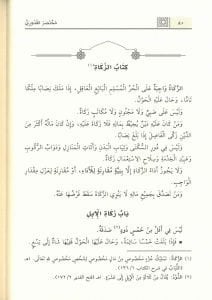 ٥٠ مختصر القدوري
كتاب الزكاة (١)
الزكاة واجبة على الحر المسلم البالغ العاقل، إذا ملك نصابا ملكا
تاما، وحال عليه الحول.
وليس على صبي ولا مجنون ولا مكاتب زكاة.
ومن كان عليه دين يحيط بماله فلا زكاة عليه، وإن كان ماله أكثر من
الدين زكى الفاضل إذا بلغ نصابا.
وليس في دور السكنى وثياب البدن وأثاث المنازل ودواب الركوب
وعبيد الخدمة وسلاح الاستعمال زكاة.
ولا يجوز أداء الزكاة إلا بنية مقارنة للأداء، أو مقارنة لعزل مقدار
الواجب.
ومن تصدق بجميع ماله لا ينوي الزكاة سقط فرضها عنه.
باب زكاة الإبل
ليس في أقل من خمس ذود (٢) صدقة.
فإذا بلغت خمسا سائمة، وحال عليها الحول ففيها شاة إلى تسع.